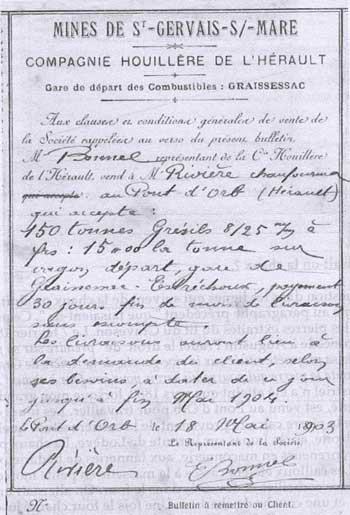 MINES DE St-GERVAIS-S/-MARE
COMPAGNIE HOUILLÈRE DE L'HÉRAULT
Gare de départ des Combustibles : GRAISSESSAC
Aux clauses et conditions générales de vente de
la Société rappelées au verso du présent bulletin.
M. Bonnel représentant de la Cie Houillère
de l'Hérault, vend à M. Rivière chaufournier
qui accepte au Pont d'Orb (Hérault)
qui accepte :
450 tonnes Grésils 8/25 à
frs : 15.00 la tonne sur
wagon départ, gare de
Graissessac - Estréchoux, payement
30 jours fin de mois de livraison
sans escompte
Les livraisons auront lieu à
la demande du client, selon
ses besoins, à dater de ce jour
jusqu'à fin Mai 1904.
Pont d'Orb le 18 Mai 1903
Le Représentant de la Société,
Rivière E. Bonnel
No Bulletin à remettre au Client.